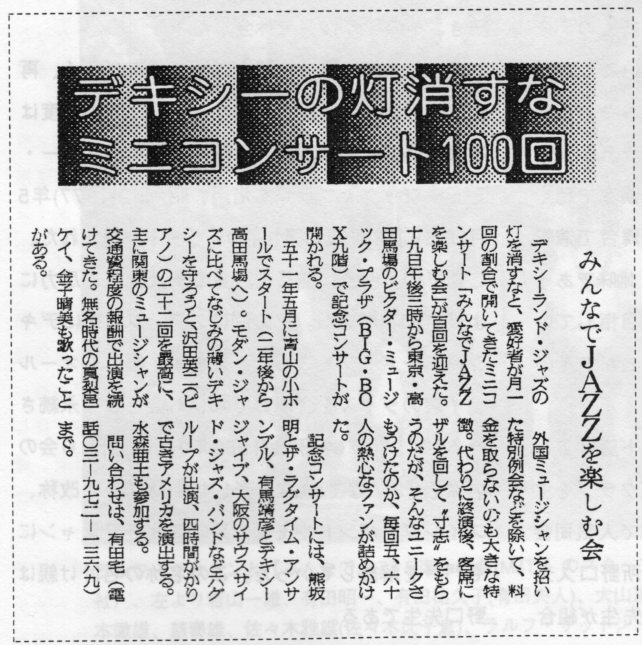 デキシーの灯消すな
ミニコンサート100回
みんなでJAZZを楽しむ会
デキシーランド・ジャズの
灯を消すなと、愛好者が月一
回の割合で開いてきたミニコ
ンサート「みんなでJAZZ
を楽しむ会」が百回を迎えた。
十九日午後三時から東京・高
田馬場のビクター・ミュージ
ック・プラザ(BIG・BO
X九階)で記念コンサートが
開かれる。
五十一年五月に青山の小ホ
ールでスタート(二年後から
高田馬場へ)。モダン・ジャ
ズに比べてなじみの薄いデキ
シーを守ろうと、沢田英二(ピ
アノ)の二十二回を最高に、
主に関東のミュージシャンが
交通費程度の報酬で出演を続
けてきた。無名時代の真梨邑
ケイ、金子晴美も歌ったこと
がある。
外国ミュージシャンを招い
た特別例会などを除いて、料
金を取らないのも大きな特
徴。代わりに終演後、客席に
ザルを回して〝寸志〟をもら
うのだが、そんなユニークさ
もうけたのか、毎回五、六十
人の熱心なファンが詰めかけ
た。
記念コンサートには、熊坂
明とザ・ラグタイム・アンサ
ンブル、有馬靖彦とデキシー
ジャイブ、大阪のサウスサイ
ド・ジャズ・バンドなど六グ
ループが出演、四時間がかり
で古きアメリカを演出する。
水森亜土も参加する。
問い合わせは、有田宅(電
話〇三―九七二―三六八九)
まで。